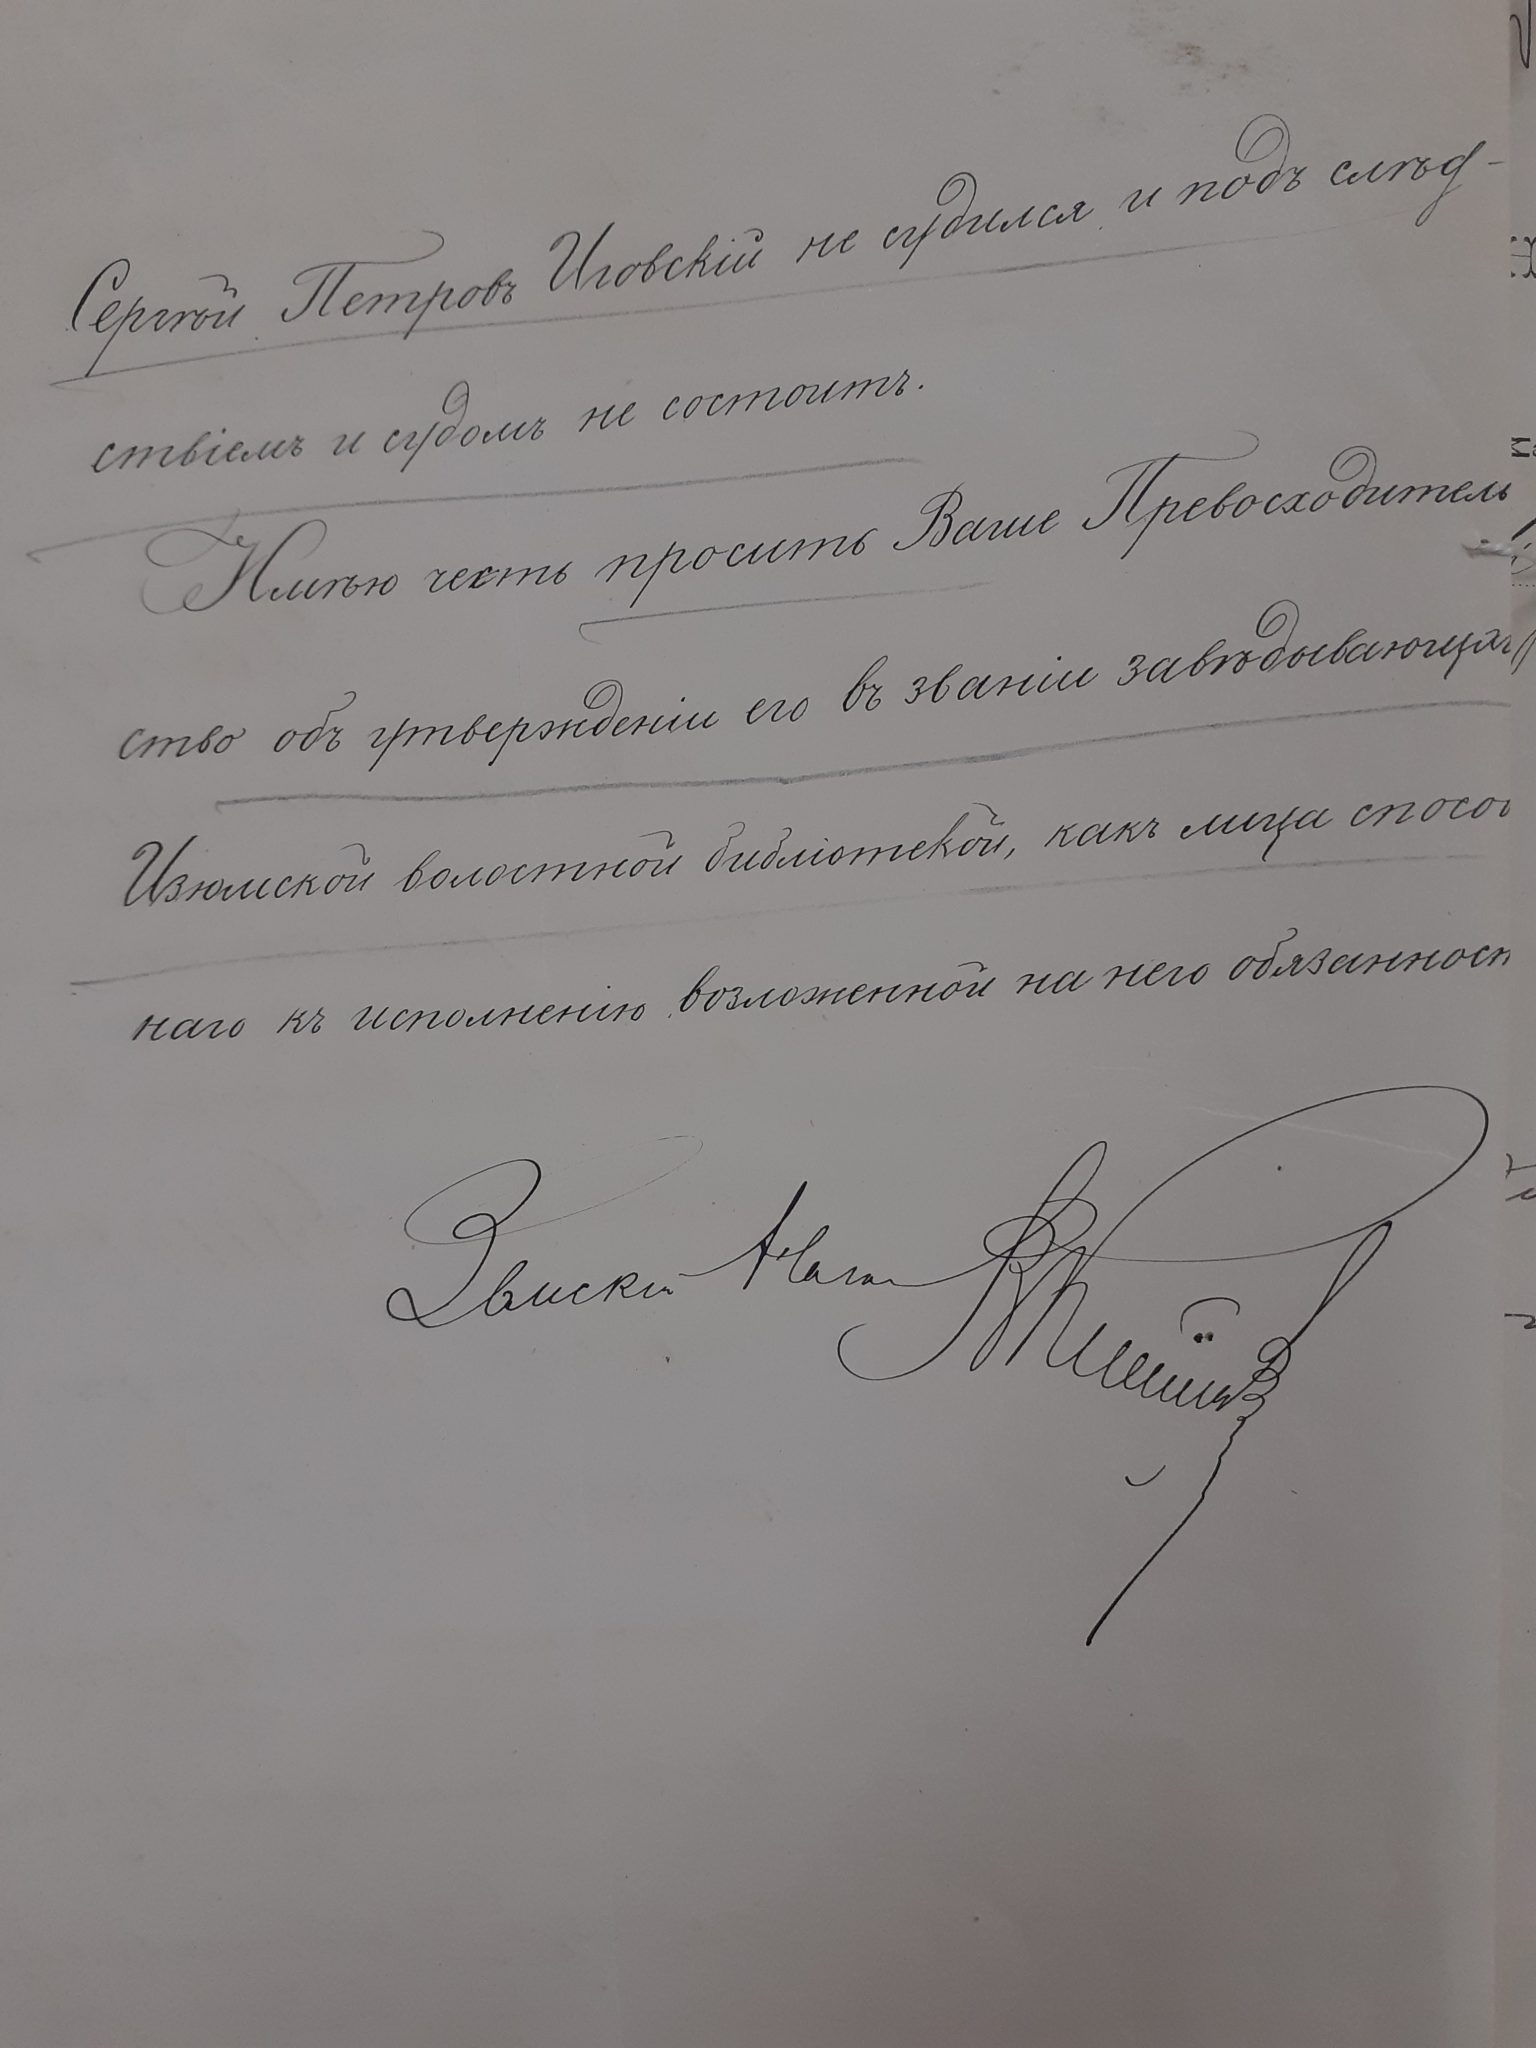 Сергѣй Петровъ Иговскій не судился и подъ слѣд-
ствіемъ и судомъ не состоитъ.
Имѣю честь просить Ваше Превосходитель
ство объ утвержденіи его въ званіи завѣдывающаг
Изюмской волостной библіотекой, какъ лица способ
наго къ исполненію возложенной на него обязанност
Земскій Нача